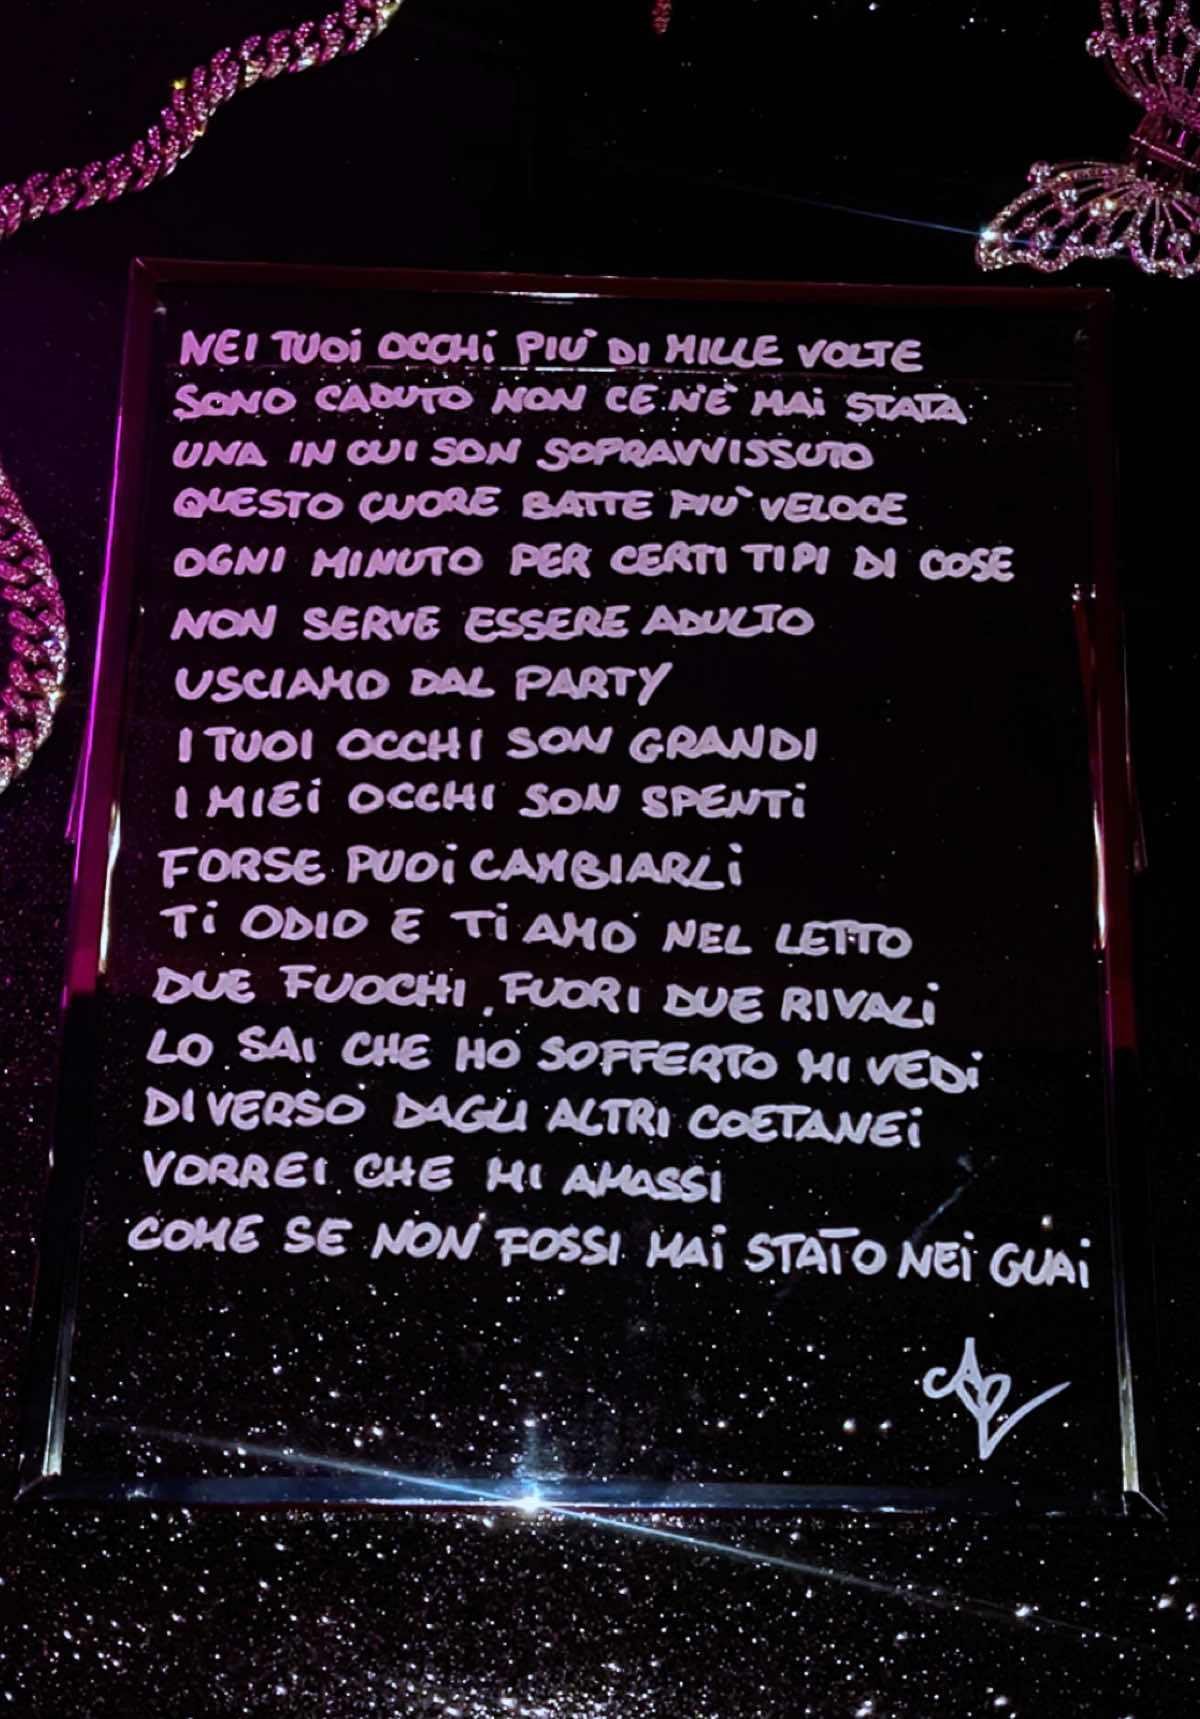 NEI TUOI OCCHI PIÙ DI MILLE VOLTE
SONO CADUTO NON CE N'È MAI STATA
UNA IN CUI SON SOPRAVVISSUTO
QUESTO CUORE BATTE PIÙ VELOCE
OGNI MINUTO PER CERTI TIPI DI COSE
NON SERVE ESSERE ADULTO
USCIAMO DAL PARTY
I TUOI OCCHI SON GRANDI
I MIEI OCCHI SON SPENTI
FORSE PUOI CAMBIARLI
TI ODIO E TI AMO NEL LETTO
DUE FUOCHI, FUORI DUE RIVALI
LO SAI CHE HO SOFFERTO MI VEDI
DIVERSO DAGLI ALTRI COETANEI
VORREI CHE MI AMASSI
COME SE NON FOSSI MAI STATO NEI GUAI